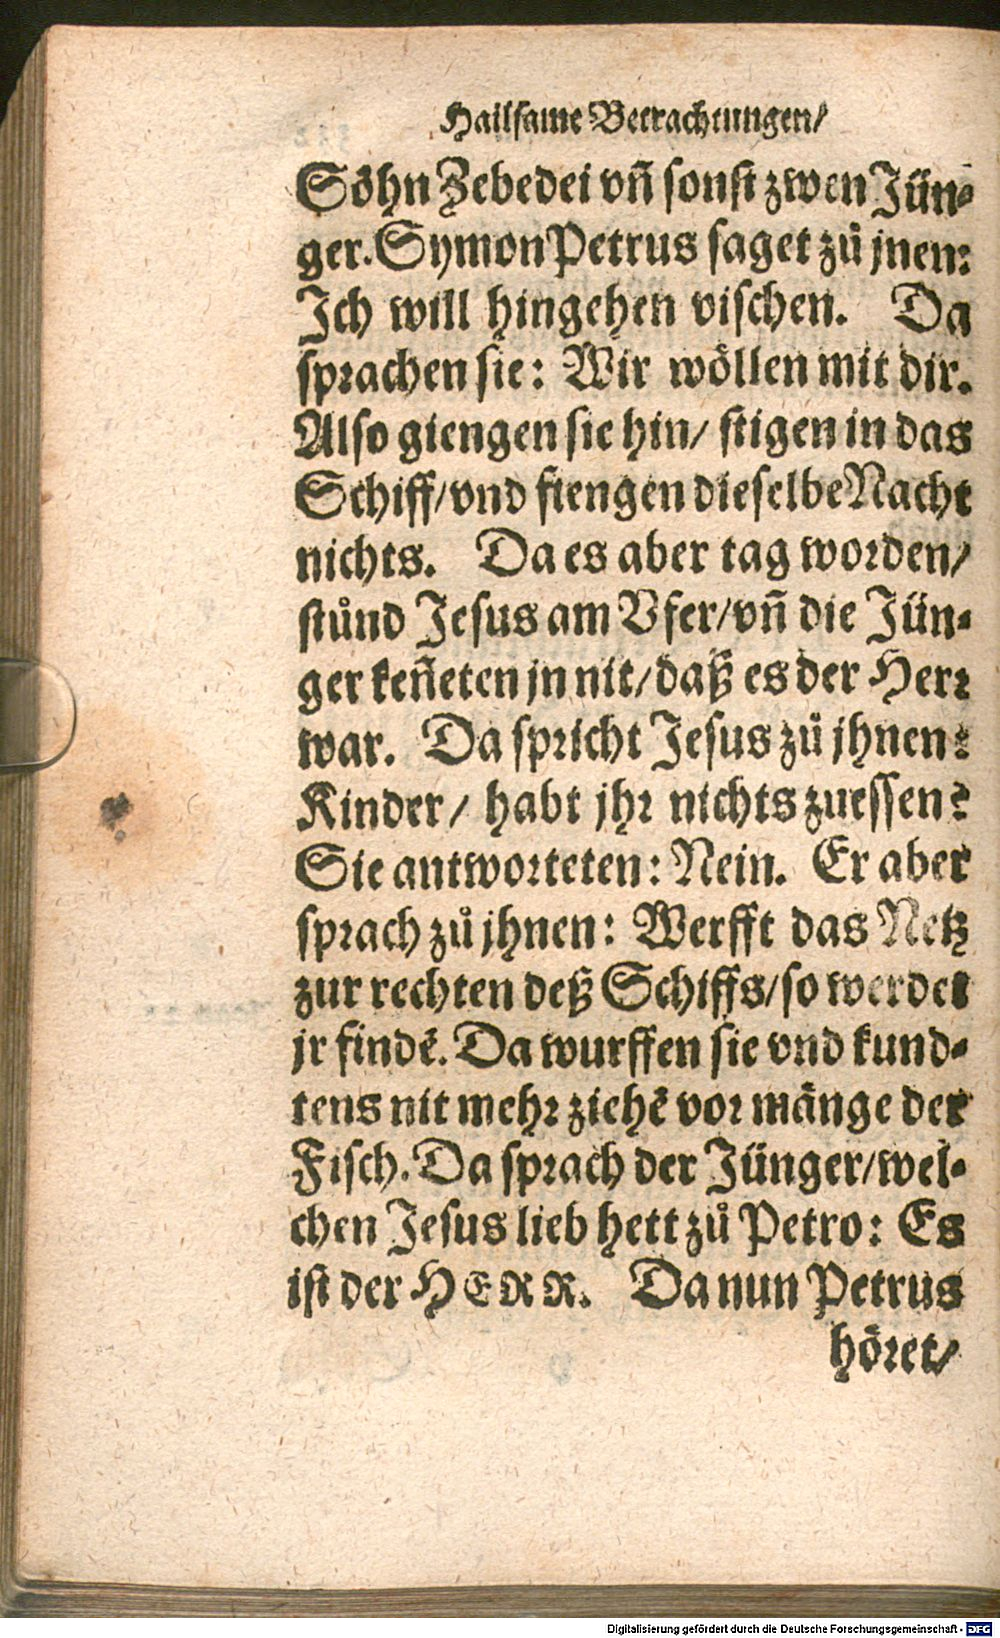 Hailsame Betrachtungen/
Söhn Zebedei vñ sonst zwen Jün-
ger. Symon Petrus saget zů jnen:
Ich will hingehen vischen. Da
sprachen sie: Wir wöllen mit dir.
Also giengen sie hin/ stigen in das
Schiff/ vnd fiengen dieselbe Nacht
nichts. Da es aber tag worden/
stůnd Jesus am Vfer/ vñ die Jün-
ger keñeten jn nit/ daß es der Herr
war. Da spricht Jesus zů jhnen:
Kinder/ habt jhr nichts zuessen?
Sie antworteten: Nein. Er aber
sprach zů jhnen: Werfft das Netz
zur rechten deß Schiffs/ so werdet
jr findẽ. Da wurffen sie vnd kund-
tens nit mehr ziehẽ vor mänge der
Fisch. Da sprach der Jünger/ wel-
chen Jesus lieb hett zů Petro: Es
ist der HERR. Da nun Petrus
höret/
Digitalisierung gefördert durch die Deutsche Forschungsgemeinschaft - DFG